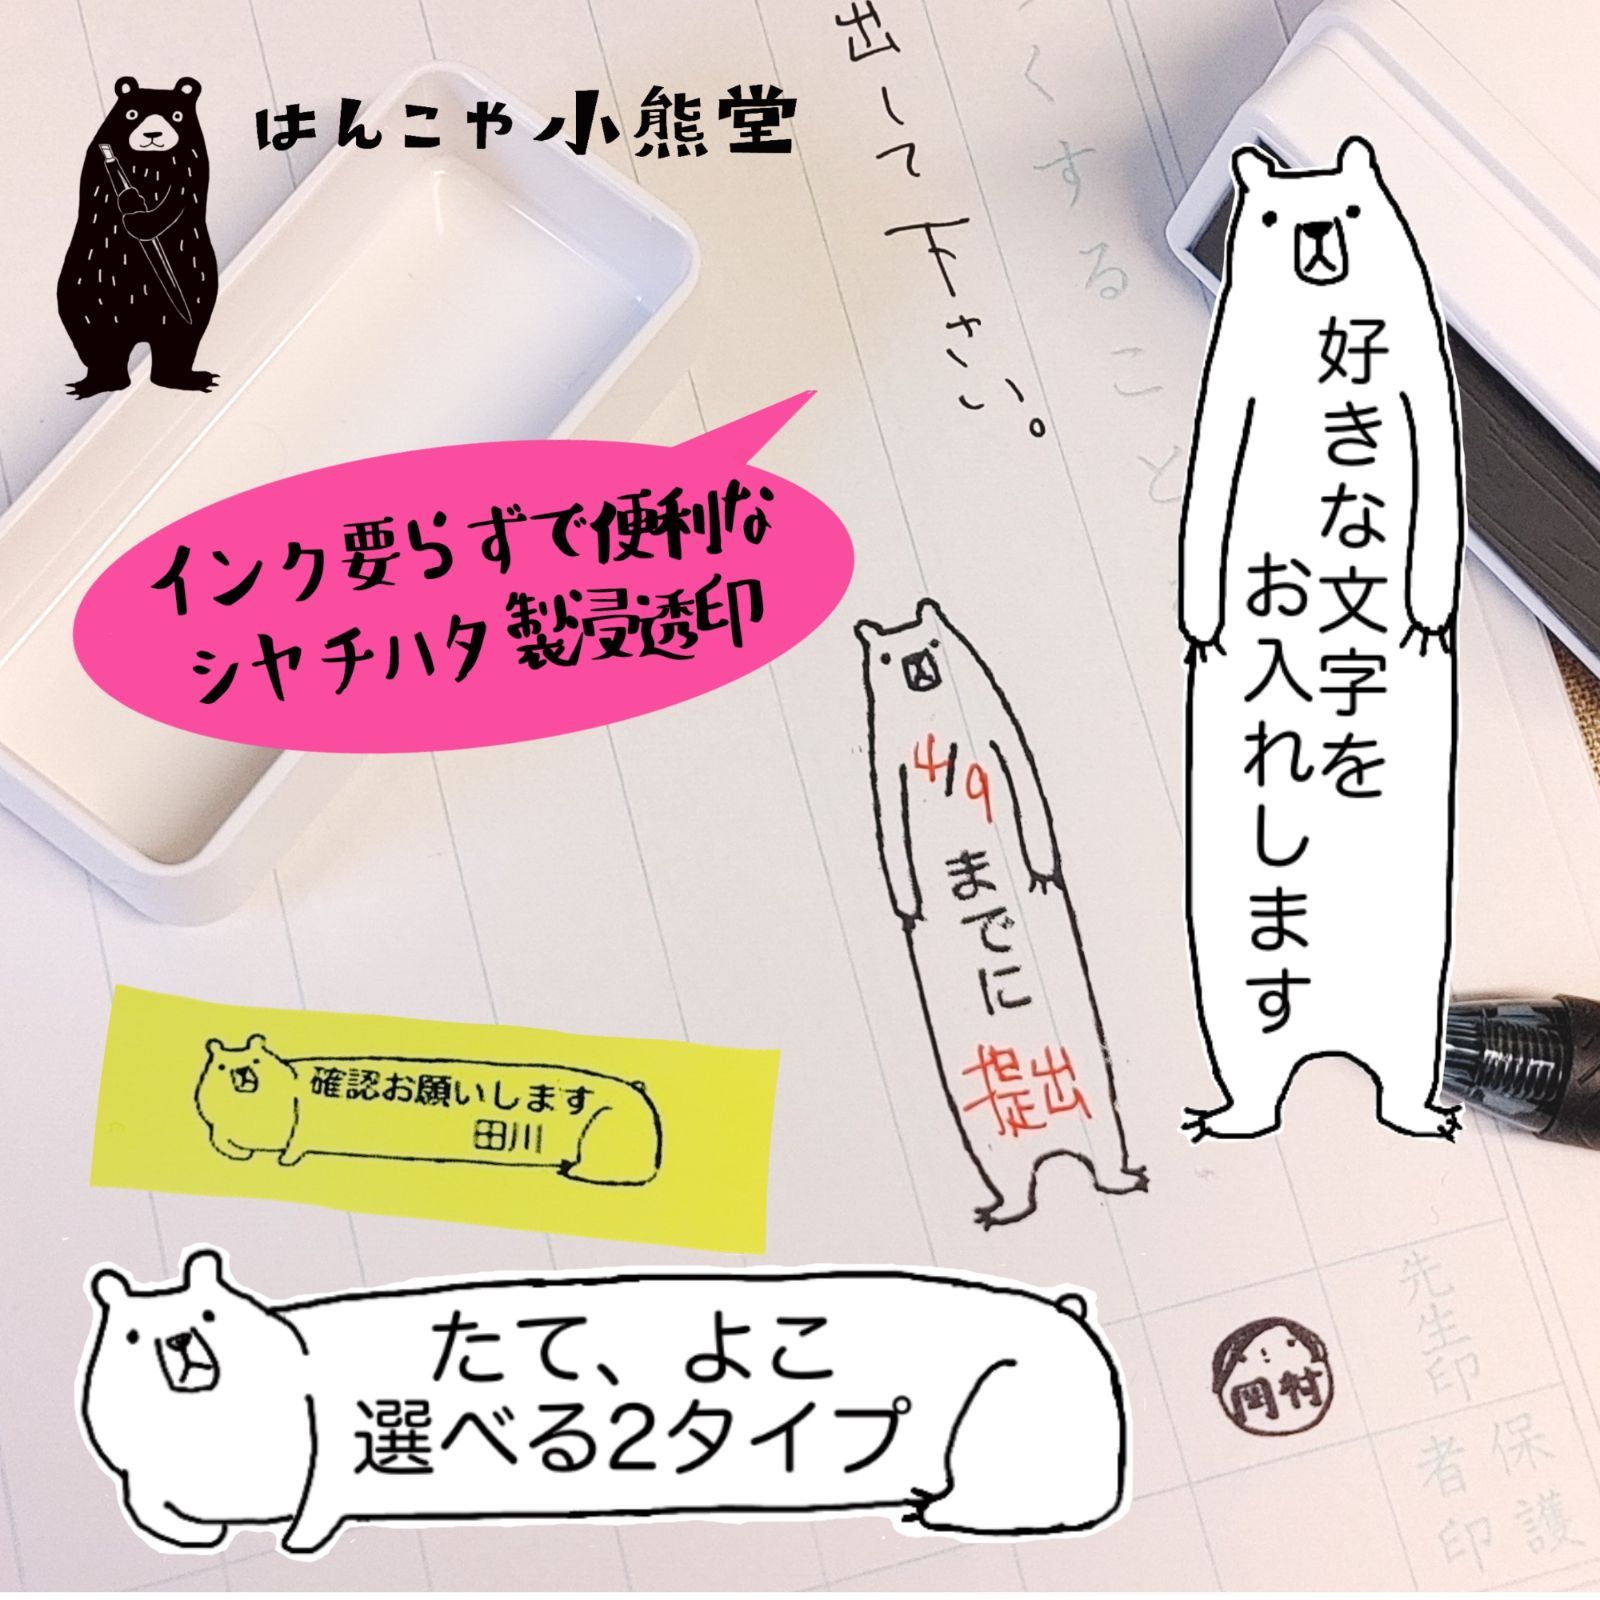 はんこや小熊堂
出して下さい。
くすること
好きな文字を
お入れします
インク要らずで便利な
シヤチハタ製浸透印
4/9までに提出
確認お願いします
田川
たて、よこ
選べる2タイプ
岡村
先生印
保護
者印